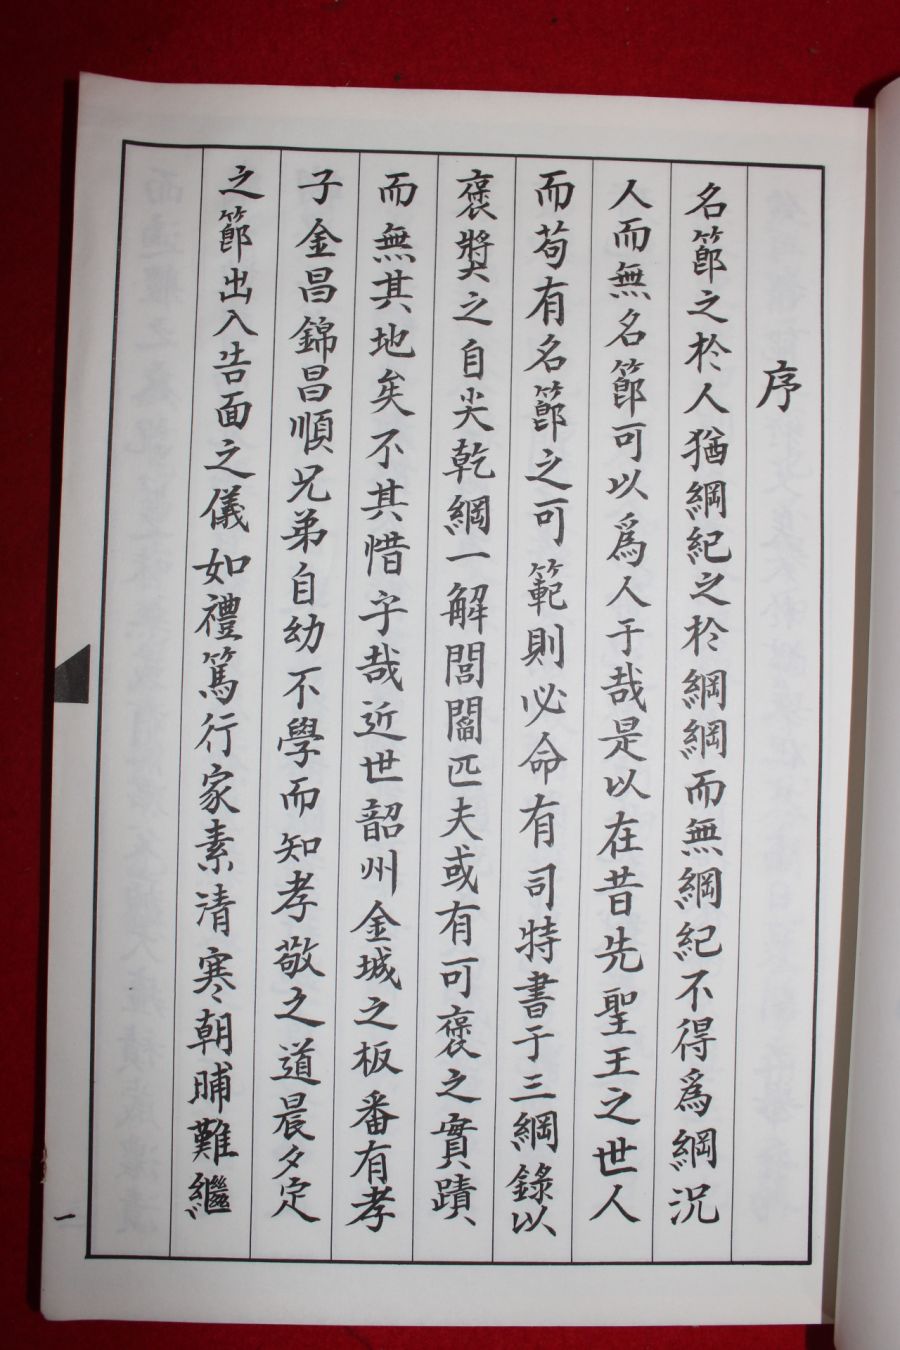 序
名節之於人猶綱紀之於綱綱而無綱紀不得爲綱況
人而無名節可以爲人于哉是以在昔先聖王之世人
而苟有名節之可範則必命有司特書于三綱錄以
褒獎之自尖乾綱一解閭閻匹夫或有可褒之實蹟
而無其地矣不其惜字哉近世韶州金城之板番有孝
子金昌錦昌順兄弟自幼不學而知孝敬之道晨夕定
之節出入告面之儀如禮篤行家素清寒朝晡難繼
一